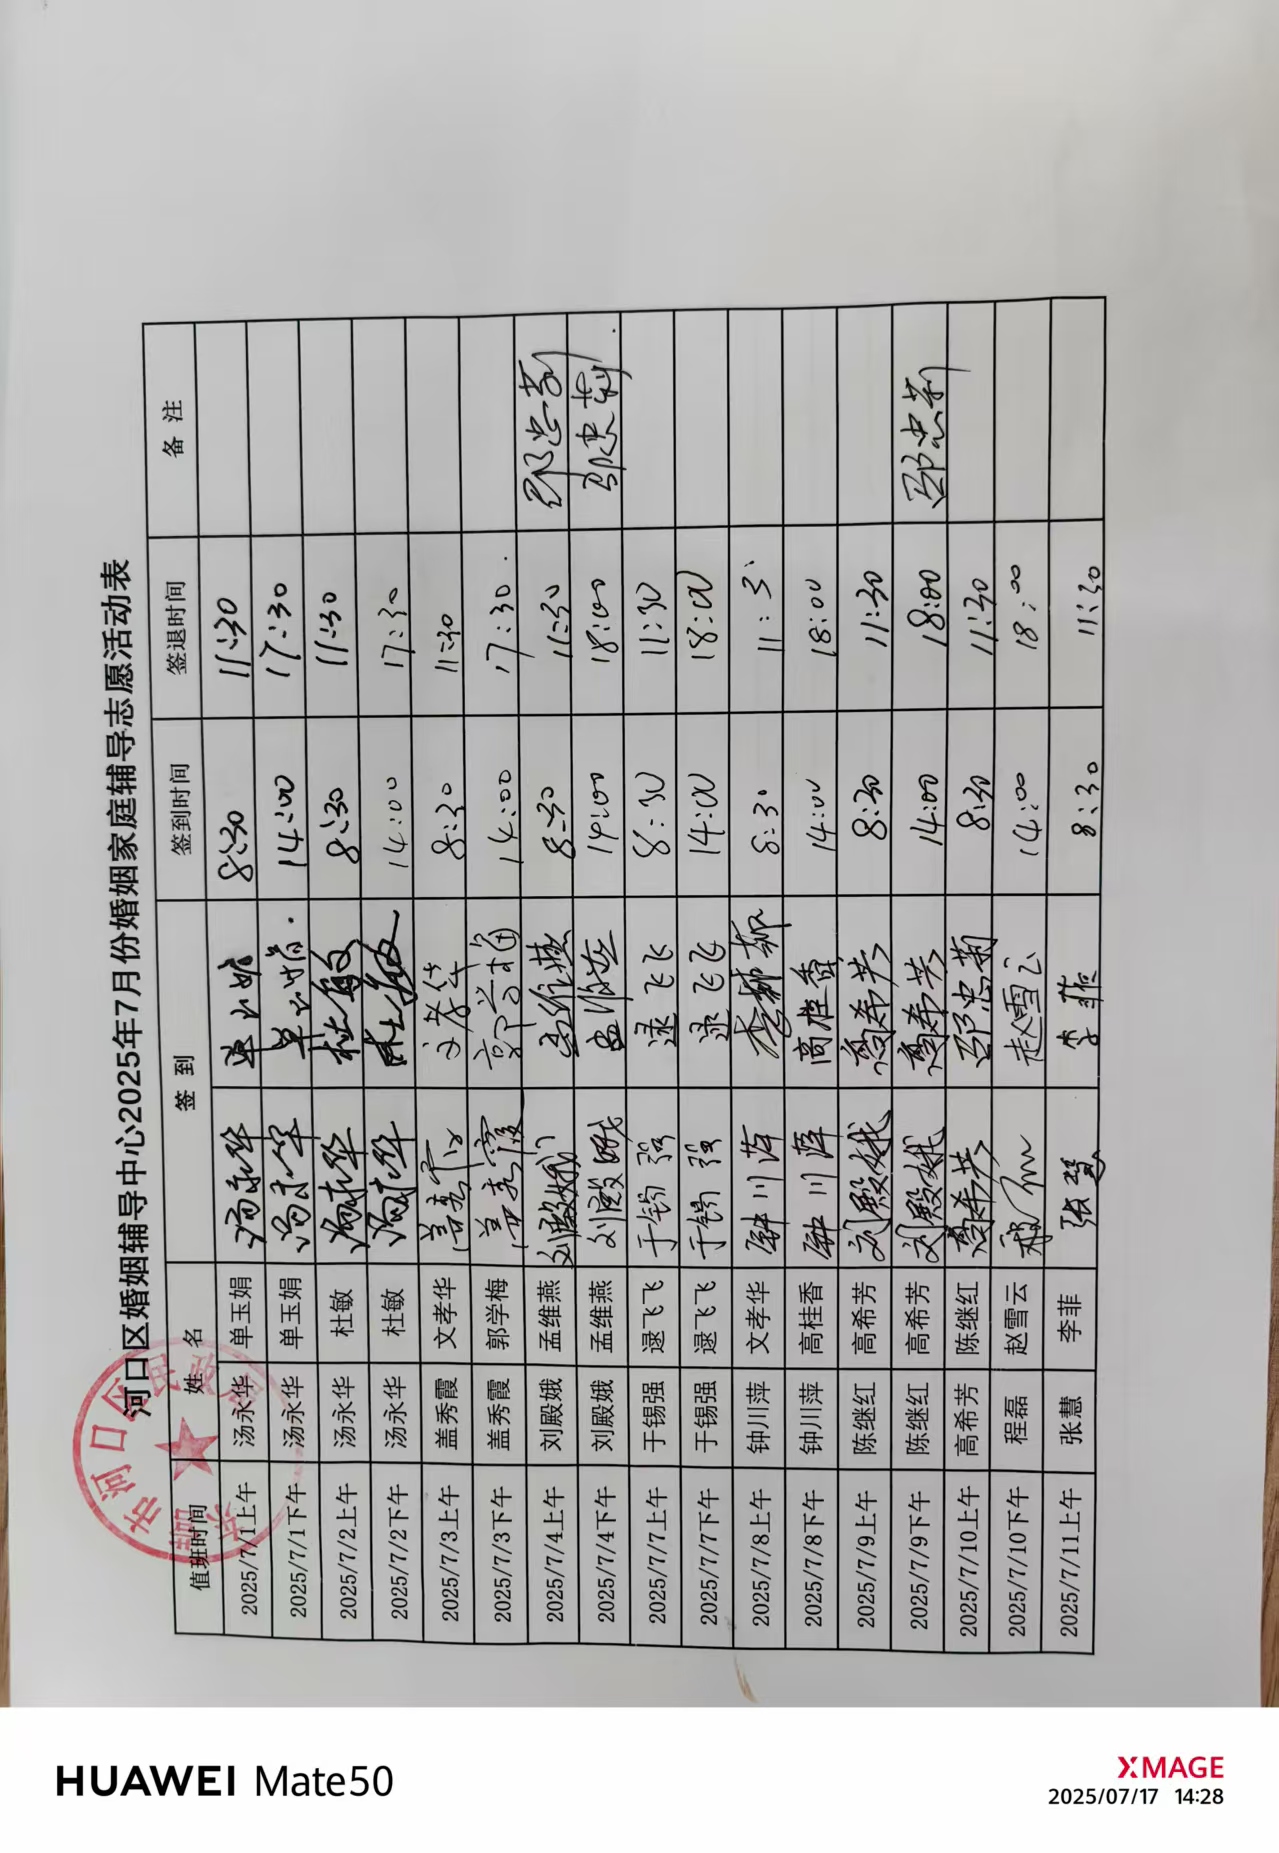 河口区婚姻辅导中心2025年7月份婚姻家庭辅导志愿活动表
值班时间 姓 名 签 到 签到时间 签退时间 备 注
2025/7/1上午 汤永华 单玉娟 汤永华 8:30 11:30
2025/7/1下午 汤永华 单玉娟 汤永华 14:00 17:30
2025/7/2上午 汤永华 杜敏 汤永华 杜敏 8:30 11:30
2025/7/2下午 汤永华 杜敏 汤永华 杜敏 14:00 17:30
2025/7/3上午 盖秀霞 文孝华 文孝华 8:30 11:30
2025/7/3下午 盖秀霞 郭学梅 盖秀霞 郭学梅 14:00 17:30
2025/7/4上午 刘殿娥 孟维燕 刘殿娥 孟维燕 8:30 11:30
2025/7/4下午 刘殿娥 孟维燕 刘殿娥 孟维燕 14:00 18:00
2025/7/7上午 于锡强 逯飞飞 于锡强 逯飞飞 8:30 11:30
2025/7/7下午 于锡强 逯飞飞 于锡强 逯飞飞 14:00 18:00
2025/7/8上午 钟川萍 文孝华 钟川萍 8:30 11:30
2025/7/8下午 钟川萍 高桂香 钟川萍 高桂香 14:00 18:00
2025/7/9上午 陈继红 高希芳 刘殿娥 高希芳 8:30 11:30
2025/7/9下午 陈继红 高希芳 刘殿娥 高希芳 14:00 18:00 邵忠菊
2025/7/10上午 高希芳 陈继红 高希芳 邵忠菊 8:30 11:30
2025/7/10下午 程磊 赵雪云 赵雪云 14:00 18:00
2025/7/11上午 张慧 李菲 张慧 李菲 8:30 11:30
HUAWEI Mate50
XMAGE
2025/07/17 14:28